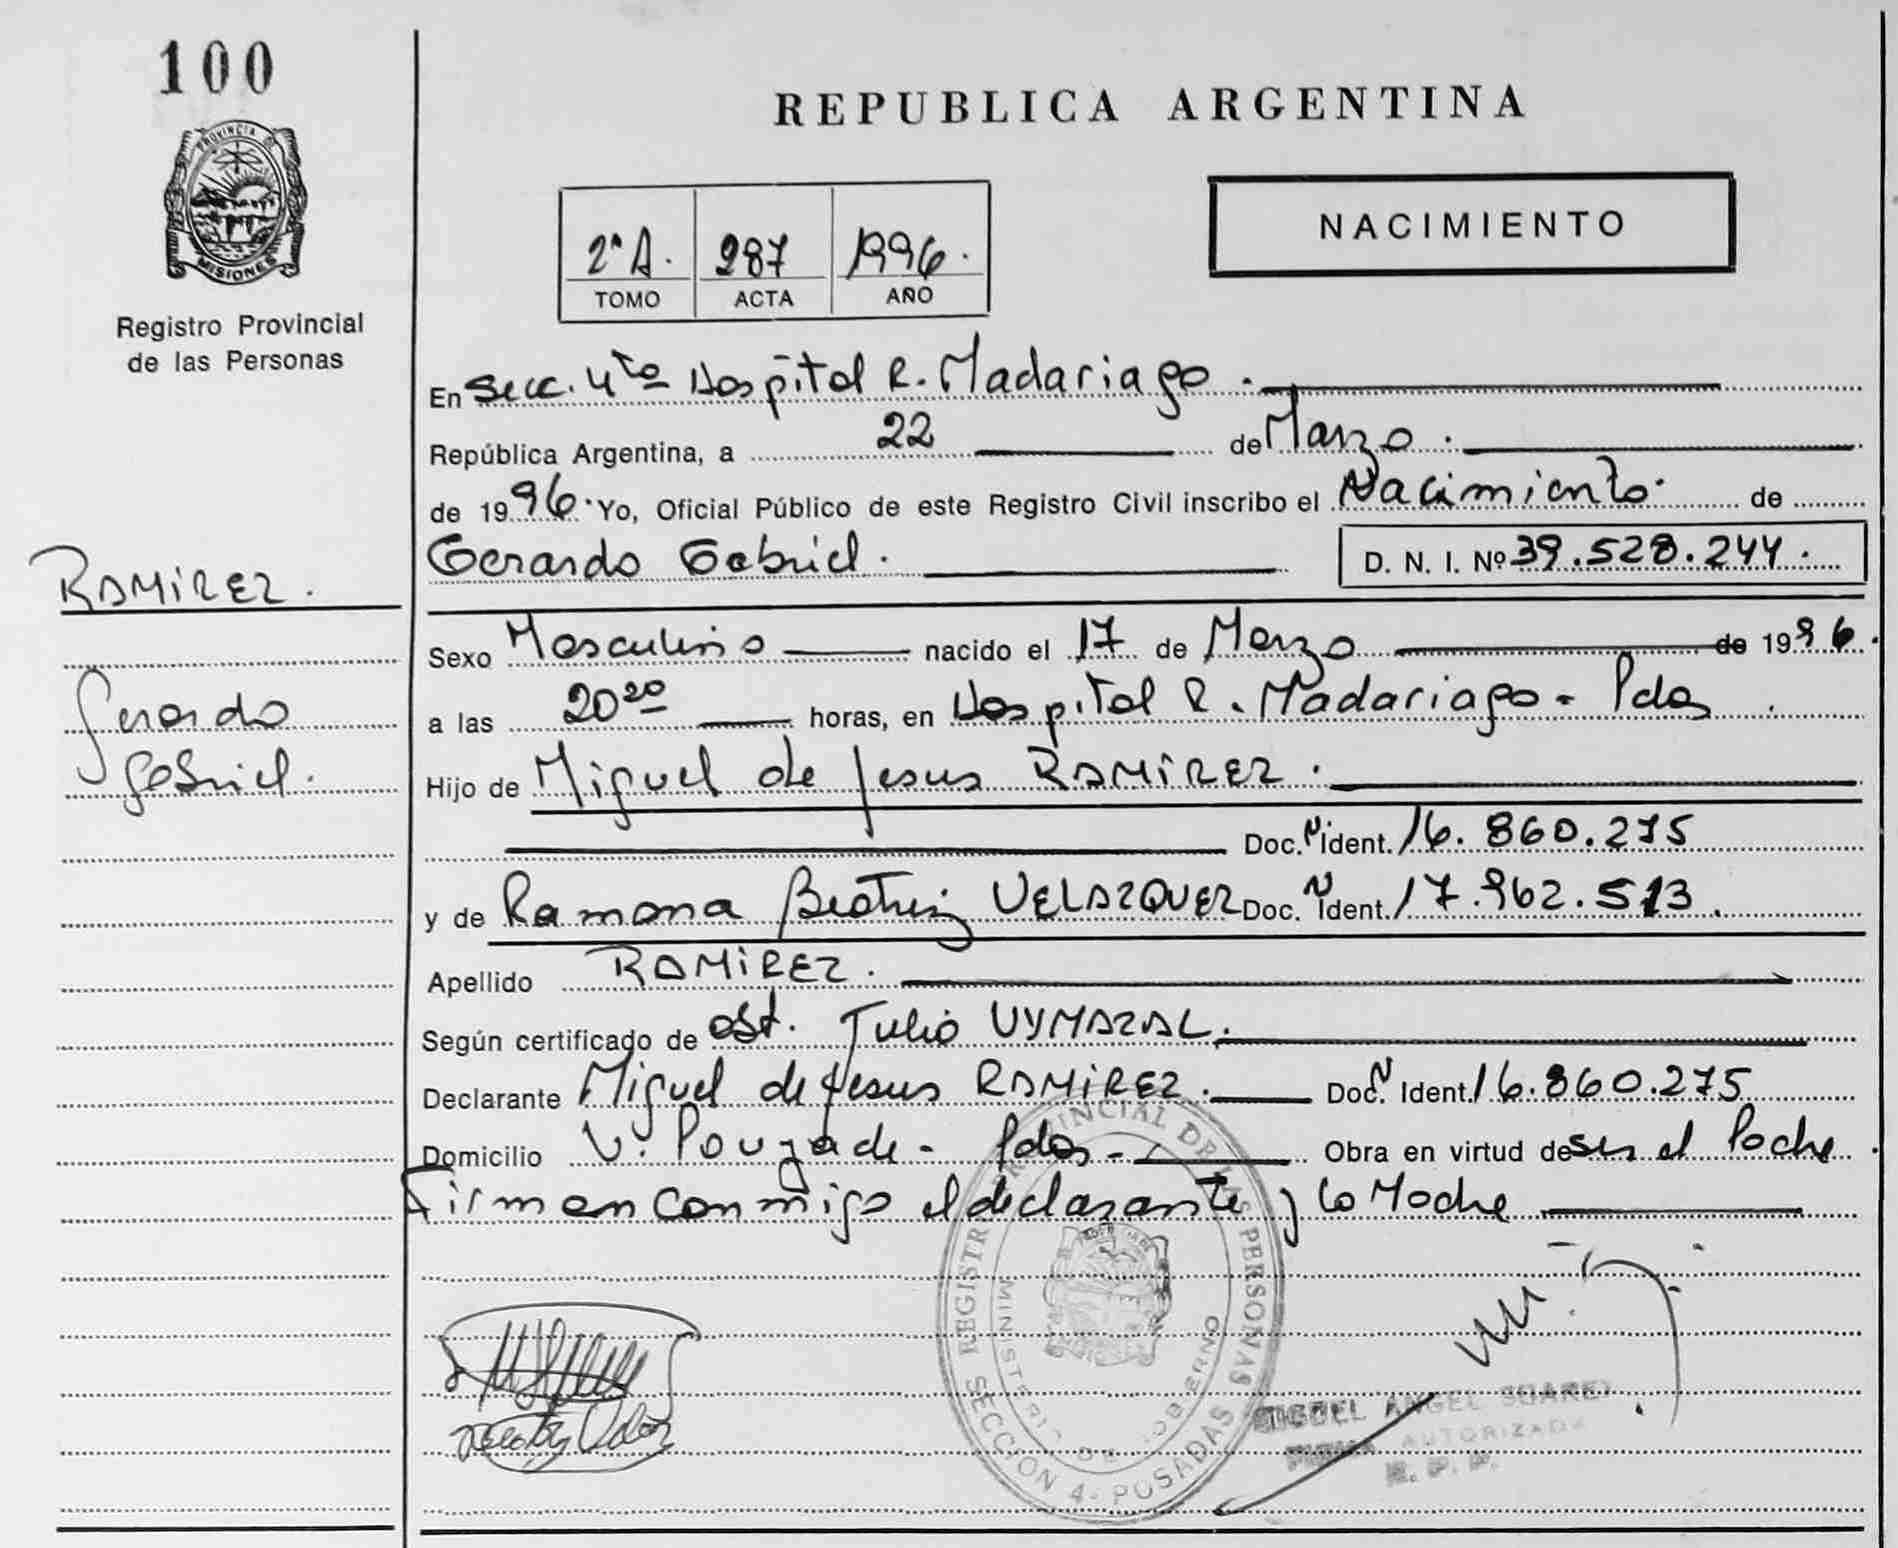 100
PROVINCIA DE
MISIONES
Registro Provincial
de las Personas
REPUBLICA ARGENTINA
NACIMIENTO
2ª A. 287 1996.
TOMO ACTA AÑO
En Secc. 4ta Hospital R. Madariaga.
República Argentina, a 22 de Marzo.
de 1996. Yo, Oficial Público de este Registro Civil inscribo el Nacimiento. de
Gerardo Gabriel. D. N. I. Nº 39.528.244.
RAMIREZ.
Gerardo
Gabriel.
Sexo Masculino nacido el 17 de Marzo de 1996.
a las 20 20 horas, en Hospital R. Madariaga - Pdas.
Hijo de Miguel de Jesus RAMIREZ.
Doc. N ident. 16.860.275
y de Ramona Beatriz VELAZQUEZ Doc. N Ident. 17.962.513.
Apellido RAMIREZ.
Según certificado de Obst. Julio VYMAZAL.
Declarante Miguel de Jesus RAMIREZ. Doc. N Ident. 16.860.275
Domicilio Vº Pouyade - Pdas - Obra en virtud de ser el Padre.
Firman conmigo el declarante y la Madre
REGISTRO PROVINCIAL DE LAS PERSONAS
MINISTERIO DE GOBIERNO
SECCION 4 - POSADAS
MIGUEL ANGEL SUAREZ
FIRMA AUTORIZADA
R. P. P.